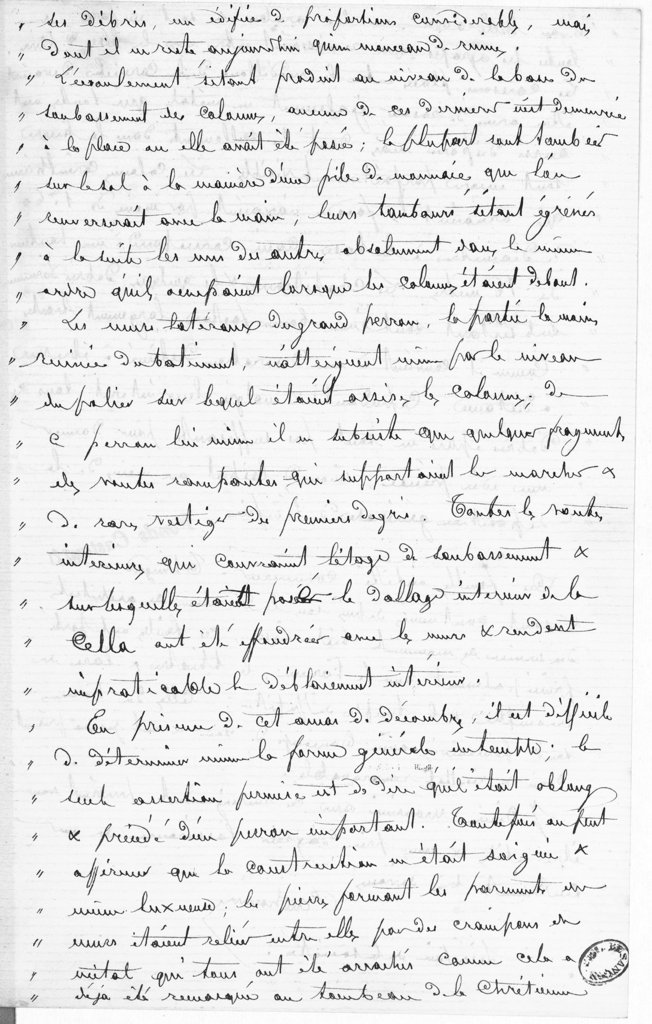 " ses débris, un édifice de proportions considérables, mais
" dont il ne reste aujourd'hui qu'un monceau de ruines.
" L'écroulement s'étant produit au niveau de la base du
" soubassement des colonnes, aucune de ces dernières n'est demeurée
" à la place où elle avait été posée ; la plupart sont tombées
" sur le sol à la manière d'une pile de monnaie que l'on
" renverserait avec la main, leurs tambours s'étant égrénés
" à la suite les uns des autres absolument dans le même
" ordre qu'ils occupaient lorsque les colonnes étaient debout.
" Les murs latéraux du grand perron, la partie la moins
" ruinée du batiment, n'atteignent même pas le niveau
" du palier sur lequel étaient assises les colonnes ; de
" ce perron lui même il ne subsiste que quelques fragments
" des voutes rampantes qui supportaient les marches &
" de rares vestiges des premiers degrés. Toutes les voutes
" intérieures qui couvraient l'étage de soubassement &
" sur lesquelles était posé le dallage intérieur de la
" Cella ont été effondrées avec les murs & rendent
" impraticable le déblaiement intérieur.
" En présence de cet amas de décombres, il est difficile
" de déterminer même la forme générale du temple ; la
" seule assertion permise est de dire qu'il était oblong
" & précédé d'un perron important. Toutefois on peut
" affirmer que la construction en était soignée &
" même luxueuse ; les pierres formant les parements des
" murs étaient reliées entre elles par des crampons en
" métal qui tous ont été arrachés comme cela a
" déjà été remarqué au tombeau de la Chrétienne